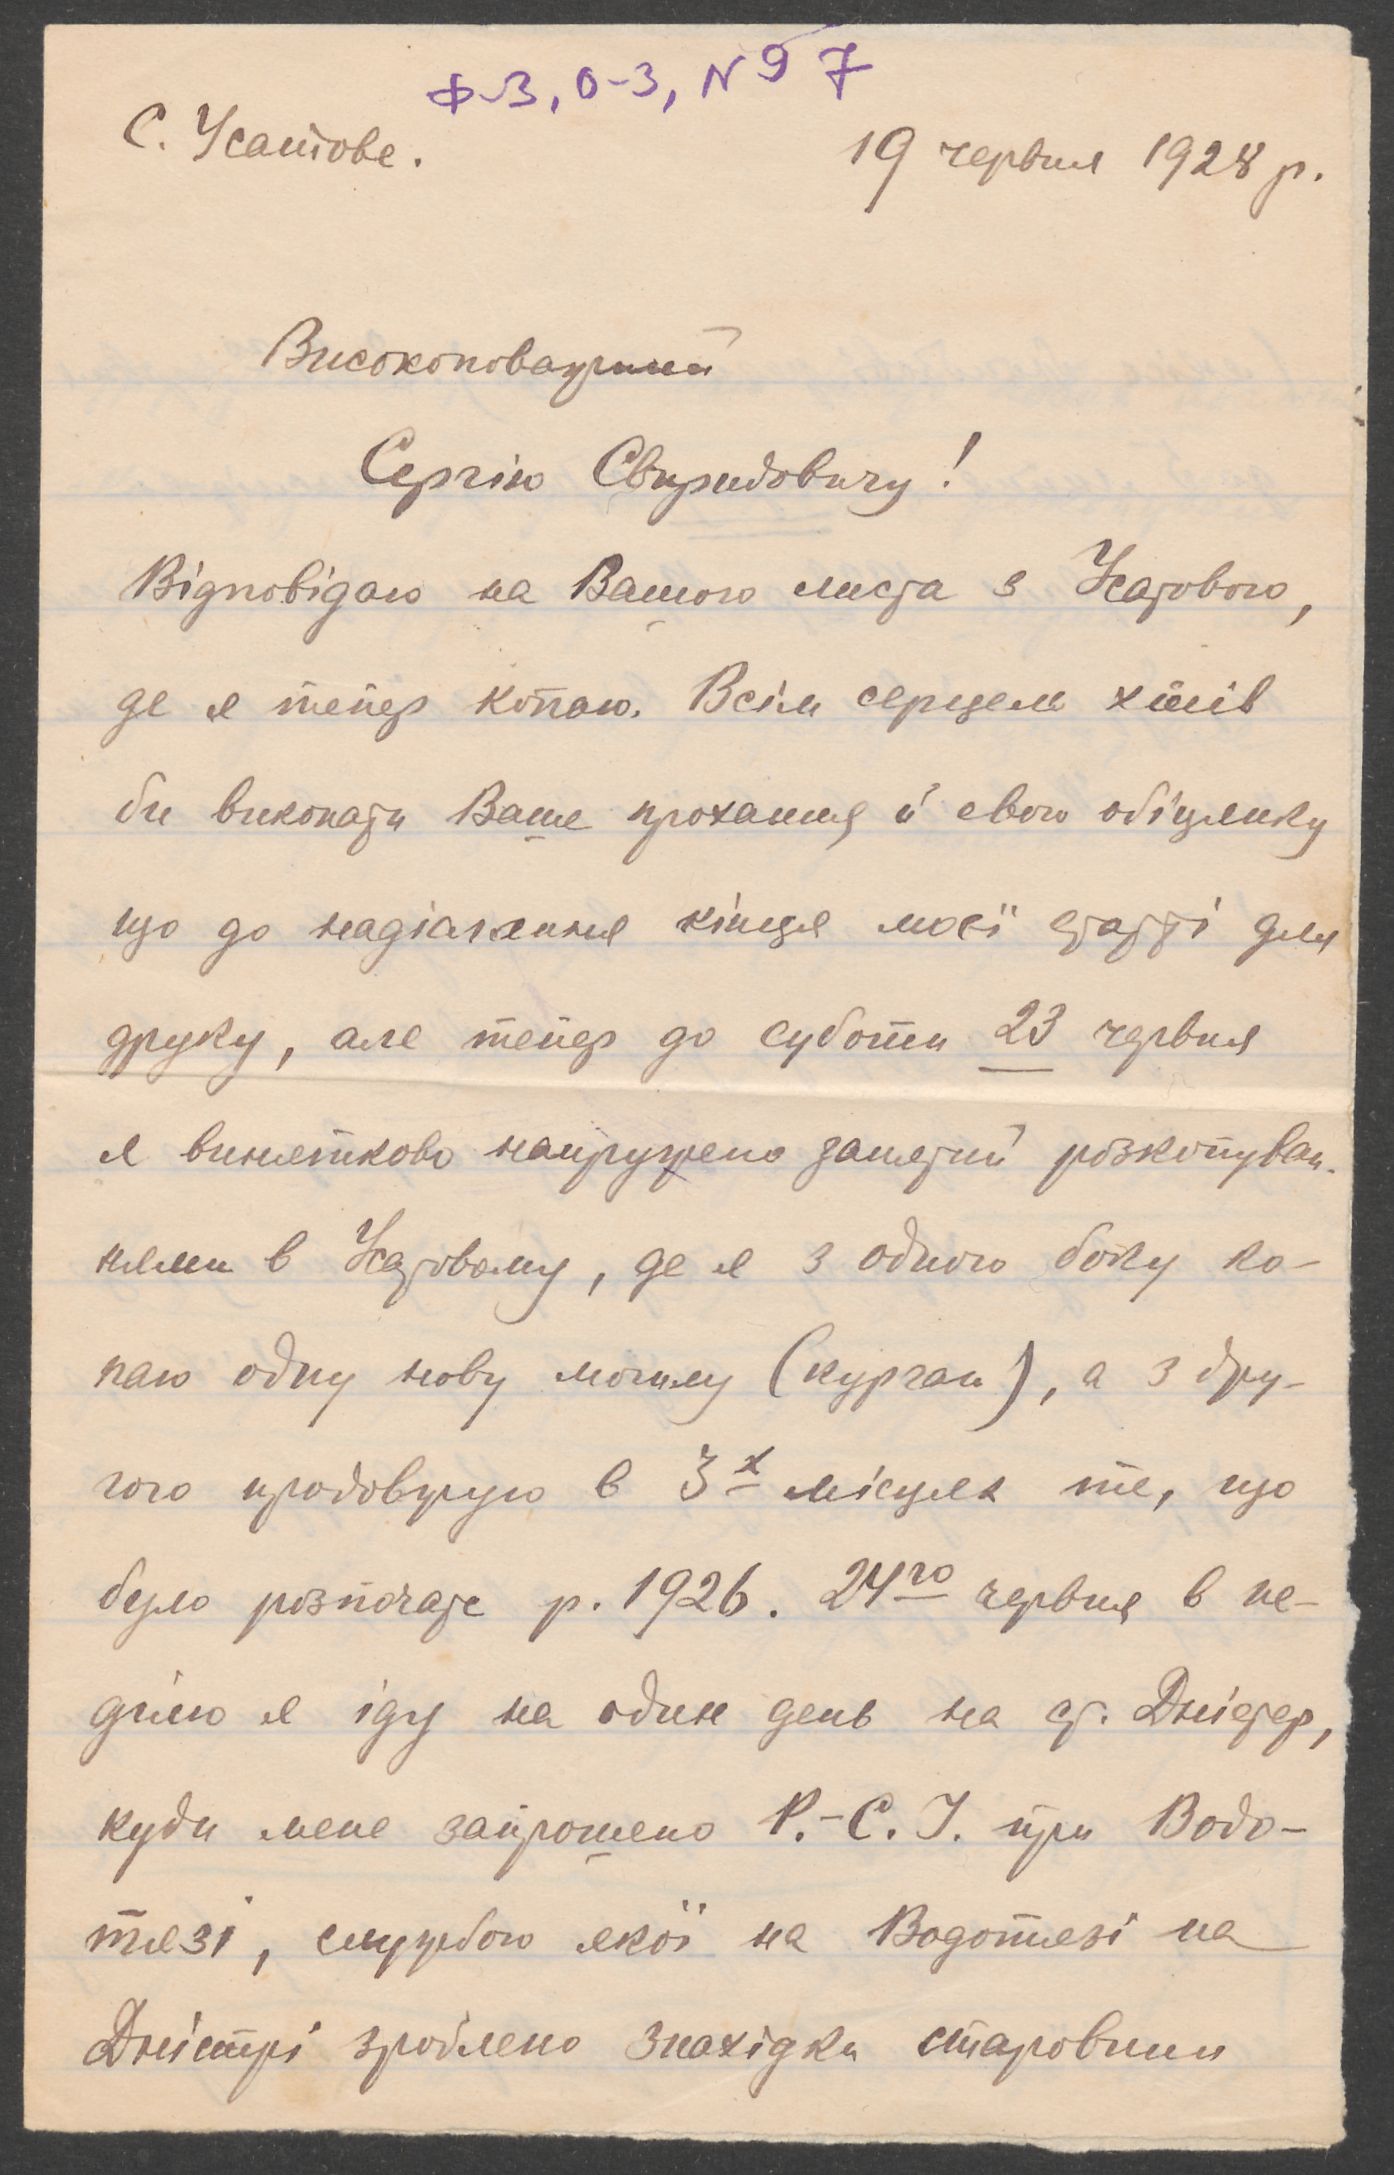 Ф-3, О-3, N 97
С. Усатове.
19 червня 1928 р.
Високоповажний
Сергію Свиридовичу!
Відповідаю на Вашого листа з Усатового,
де я тепер копаю. Всім серцем хтів
би виконати Ваше прохання й свою обіцянку
що до надіслання кінця моєї статті для
друку, але тепер до суботи 23 червня
я винятково напружено занятий розкопуван-
нями в Усатовому, де я з одного боку ко-
паю одну нову могилу (курган), а з дру-
гого продовжую в 3х місцях те, що
було розпочате р. 1926. 24го червня в не-
ділю я їду на один день на ст. Дністер,
куди мене запрошено Р.-С. І. при Водо-
тязі, службою якої на Водотязі на
Дністрі зроблено знахідки старовини